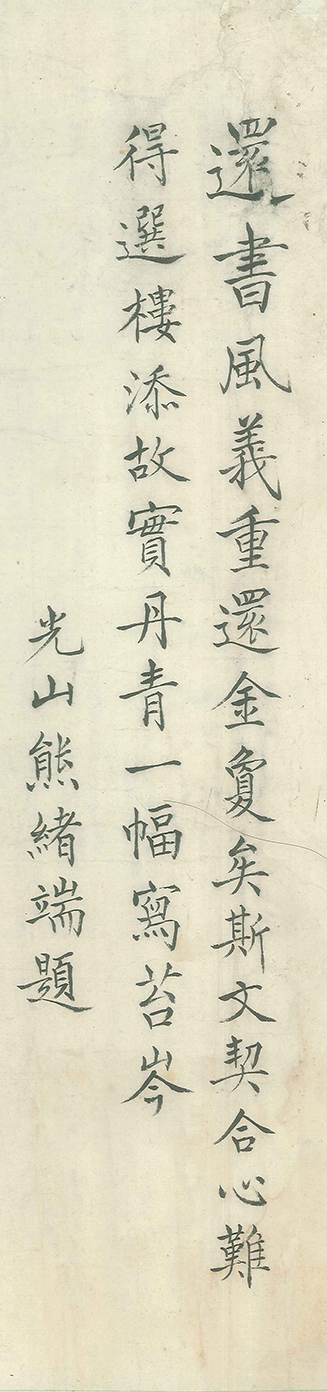 還書風義重還金夐矣斯文契合心難
得選樓添故實丹青一幅寫苔岑
光山熊緒端題